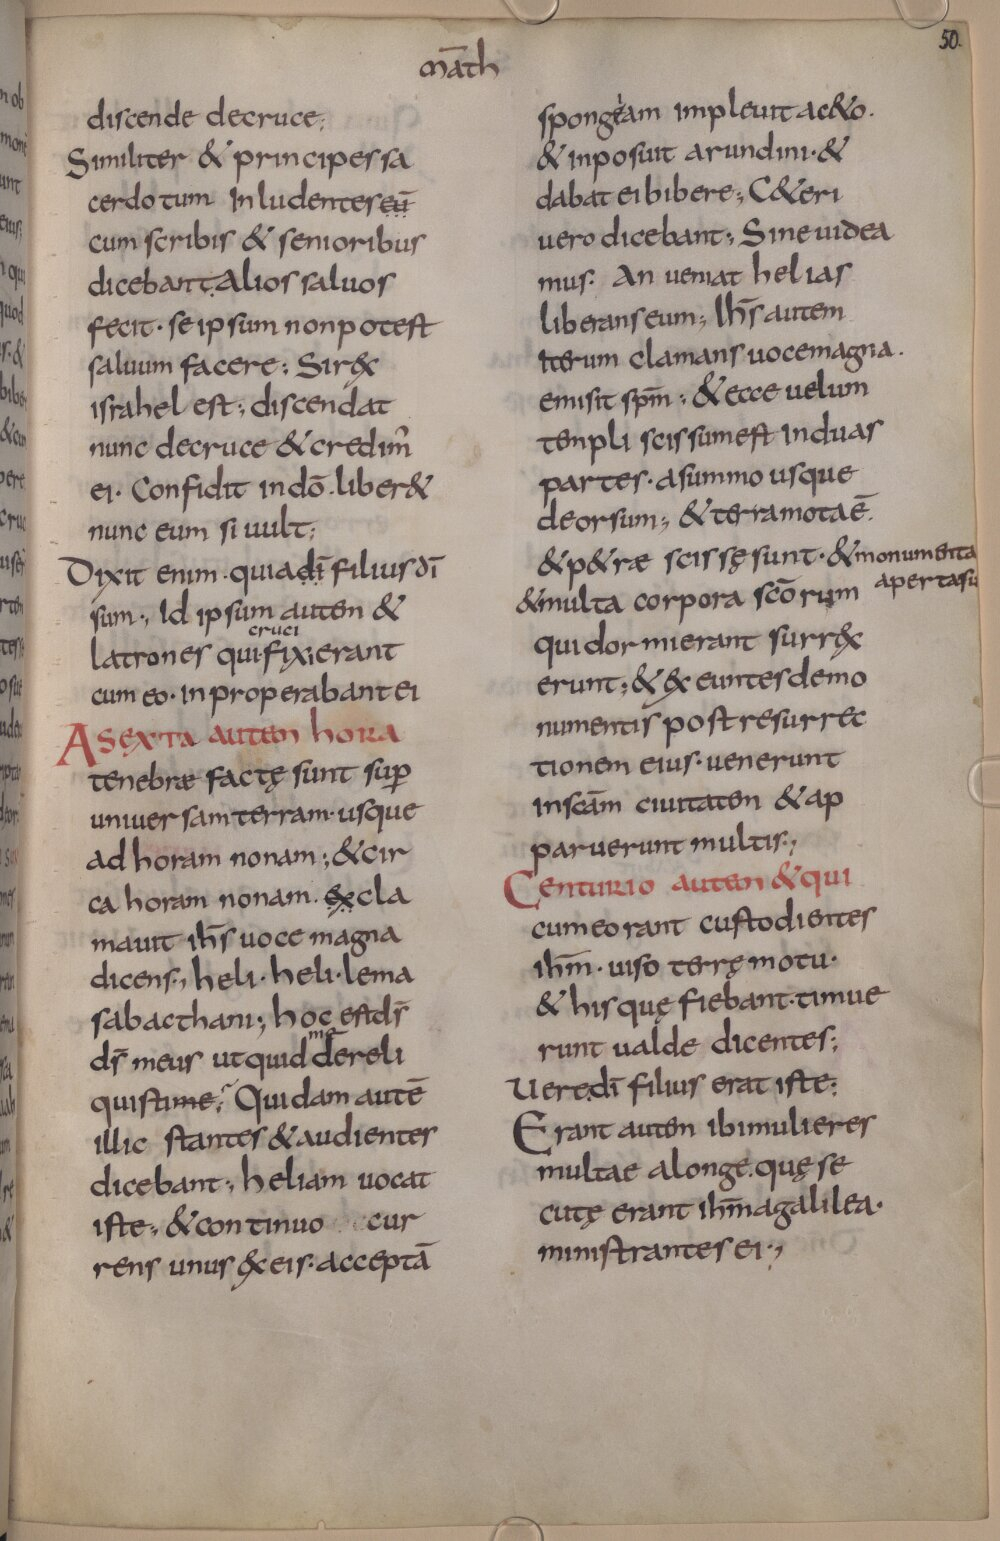 50.
māth
discende decruce;
Similiter & principes sa
cerdotum Inludentes eū
cum scribis & senioribus
dicebant. Alios saluos
fecit · se ipsum non potest
saluum facere; Si rex
israhel est; discendat
nunc decruce & credim̄
ei · Confidit in dō · liber&
nunc eum si uult;
Dixit enim · quia dī filius dī
sum; Id ipsum autem &
cruci
latrones qui fixi erant
cum eo · inproperabant ei
A sexta autem hora
tenebrae factę sunt sup̄
uniuersam terram · usque
ad horam nonam; & cir
ca horam nonam. excla
mauit ih̄s uoce magna
dicens; heli · heli · lema
sabacthani; hoc est ds̄
me
ds̄ meus utquid dereli
quisti me; Quidam autē
illic stantes & audientes
dicebant; heliam uocat
iste; & continuo cur
rens unus ex eis · acceptā
spongeam impleuit ac&o.
& inposuit arundini · &
dabat ei bibere; C&eri
uero dicebant; Sine uidea
mus · An ueniat helias
liberans eum; Ih̄s autem
Iterum clamans uoce magna.
emisit sp̄m; & ecce uelum
templi scissum est Induas
partes · asummo usque
deorsum; & terra mota ē.
& p&rae scissę sunt · & monumenta
aperta su
& multa corpora scōrum
qui dormierant surrex
erunt; & exeuntes demo
numentis post resurrec
tionem eius · uenerunt
in scām ciuitatem & ap
paruerunt multis;
Centurio autem & qui
cum eo rant custodientes
ih̄m · uiso terrę motu ·
& his quę fiebant · timue
runt ualde dicentes;
Uere dī filius erat iste;
Erant autem ibi mulieres
multae alonge. quę se
cutę erant ih̄m agalilea ·
ministrantes ei;